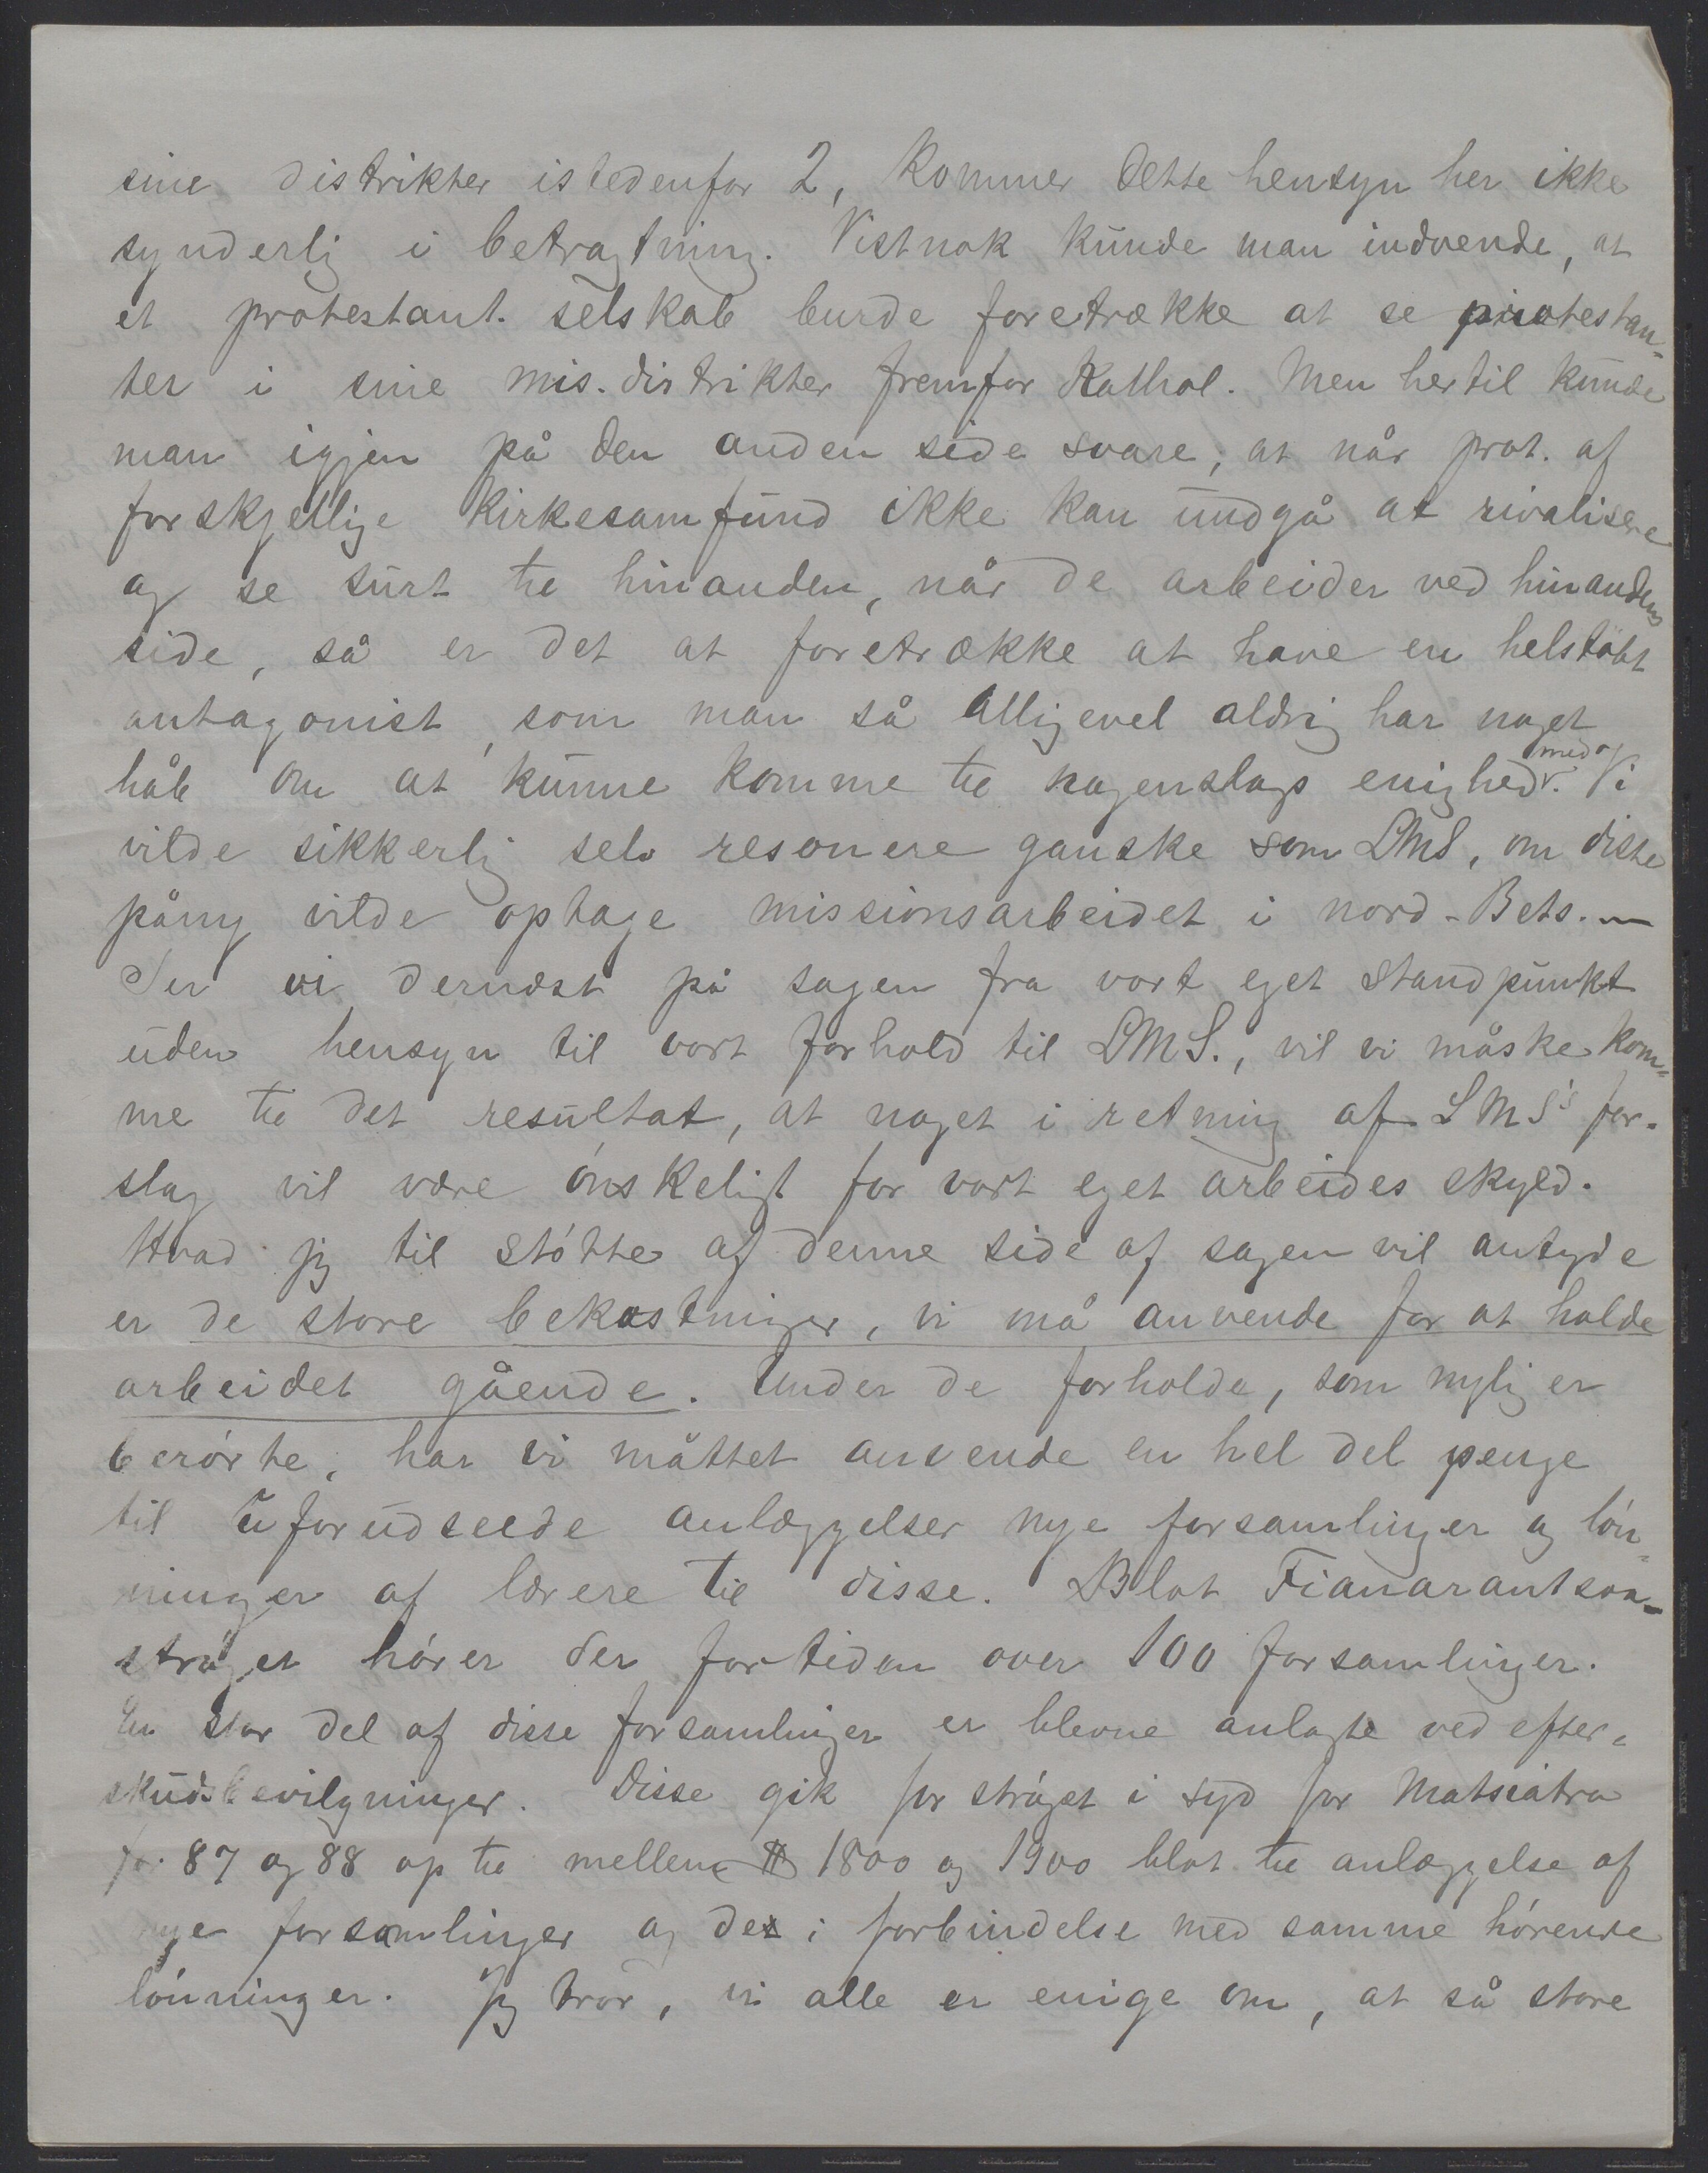 sine distrikter istedenfor 2, kommer dette hensyn her ikke
synderlig i betragtning. Vistnok kunde man indvende, at
et protestant. selskab burde foretrække at se protestan-
ter i sine mis. distrikter fremfor Kathol. Men hertil kunde
man igjen på den anden side svare, at når prot. af
forskjellige kirkesamfund ikke kan undgå at rivalisere
og se surt til hinanden, når de arbeider ved hinandens
side, så er det at foretrække at have en helstøbt
antagonist, som man så alligevel aldrig har noget
håb om at kunne komme til nogenslags enighed med. Vi
vilde sikkerlig selv resonere ganske som LMS, om disse
påny vilde optage missionsarbeidet i nord-Bets. —
Ser vi dernæst på sagen fra vort eget standpunkt
uden hensyn til vort forhold til LMS., vil vi måske kom-
me til det resultat, at noget i retning af LMS's for-
slag vil være ónskeligt for vort eget arbeides skyld.
Hvad jeg til stótte af denne side af sagen vil antyde
er de store bekostninger, vi må anvende for at holde
arbeidet gående. Under de forholde, som nylig er
berórte, har vi måttet anvende en hel del penge
til uforudseede anlæggelser nye forsamlinger og lón-
ninger af lærere til disse. Blot Fianarantsoa-
stróget hórer der for tiden over 100 forsamlinger.
En stor del af disse forsamlinger er blevne anlagte ved efter-
skudsbevilgninger. Disse gik for stróget i syd for Matsiatra
for 87 og 88 op til mellem $ 1800 og 1900 blot til anlæggelse af
nye forsamlinger og de i forbindelse med samme hórende
lónninger. Jeg tror, vi alle er enige om, at så store